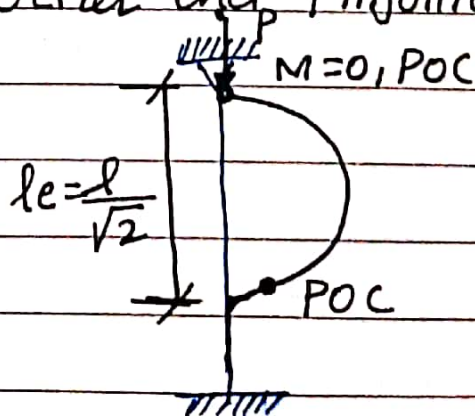 P
M=0, POC
le = l/√2
POC